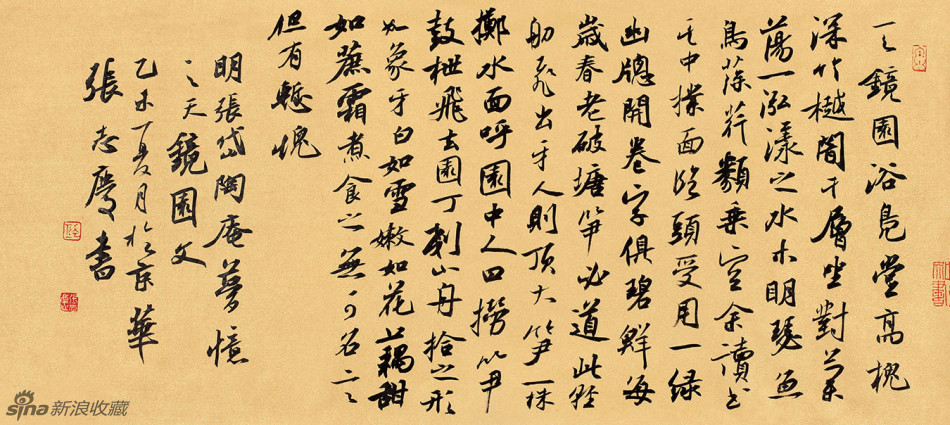 天鏡園浴鳧堂高槐
深竹樾闇千層坐對蘭
蕩一泓漾之水木明瑟魚
鳥藻荇類乘空余讀書
其中撲面臨頭受用一綠
幽牕開卷字俱碧鮮每
歲春老破塘笋必道此輕
舠飛出牙人則頂大笋一株
擲水面呼園中人曰撈笋
鼓枻飛去園丁划小舟拾之形
如象牙白如雪嫩如花藕甜
如蔗霜煮食之無可名言
但有慙愧
明張岱陶庵夢憶
之天鏡園文
乙未夏月於京華
張志慶書
sina新浪收藏